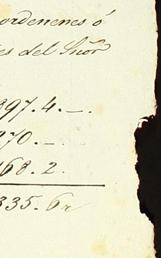 ordenenes ó
es del Señor
397.4._.
70._
168.2.
335.6r